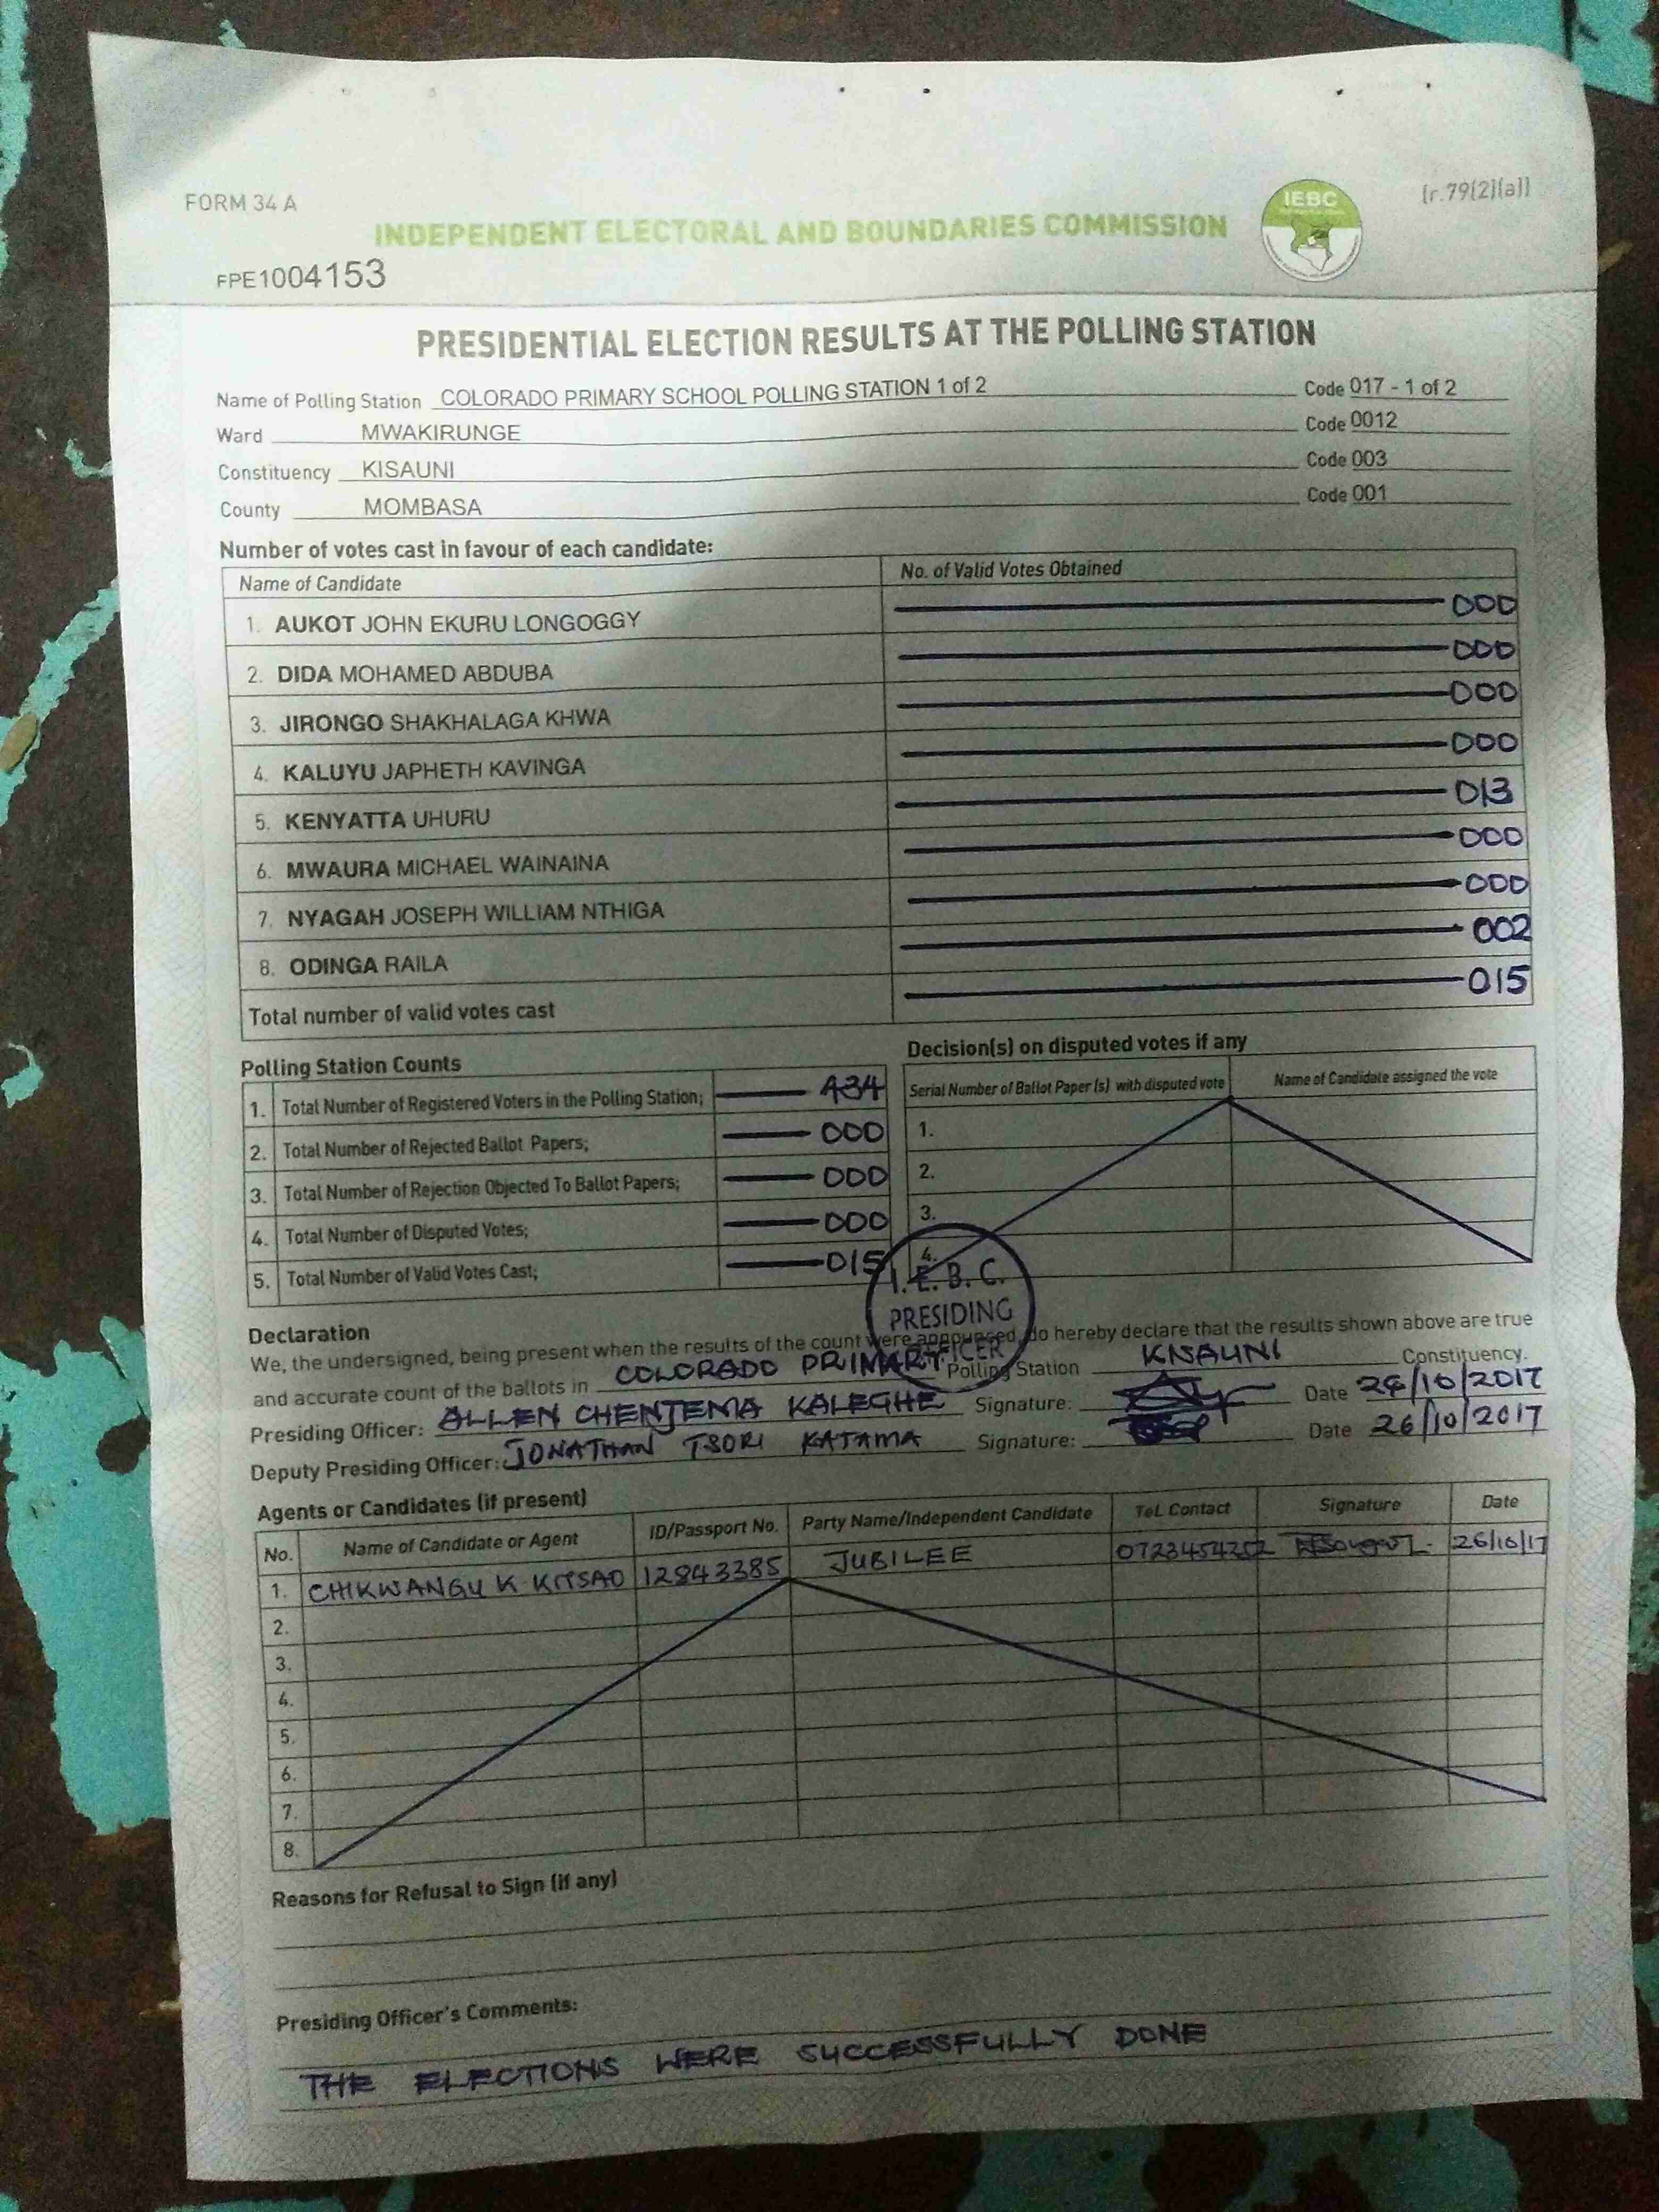 FORM 34 A
[r.79(2)(a)]
IEBC
INDEPENDENT ELECTORAL AND BOUNDARIES COMMISSION
FPE1004153
PRESIDENTIAL ELECTION RESULTS AT THE POLLING STATION
Name of Polling Station COLORADO PRIMARY SCHOOL POLLING STATION 1 of 2 Code 017 - 1 of 2
Ward MWAKIRUNGE Code 0012
Constituency KISAUNI Code 003
County MOMBASA Code 001
Number of votes cast in favour of each candidate:
Name of Candidate No. of Valid Votes Obtained
1. AUKOT JOHN EKURU LONGOGGY 000
2. DIDA MOHAMED ABDUBA 000
3. JIRONGO SHAKHALAGA KHWA 000
4. KALUYU JAPHETH KAVINGA 000
5. KENYATTA UHURU 013
6. MWAURA MICHAEL WAINAINA 000
7. NYAGAH JOSEPH WILLIAM NTHIGA 000
8. ODINGA RAILA 002
Total number of valid votes cast 015
Polling Station Counts
1. Total Number of Registered Voters in the Polling Station; 434
2. Total Number of Rejected Ballot Papers; 000
3. Total Number of Rejection Objected To Ballot Papers; 000
4. Total Number of Disputed Votes; 000
5. Total Number of Valid Votes Cast; 015
Decision(s) on disputed votes if any
Serial Number of Ballot Paper (s) with disputed vote Name of Candidate assigned the vote
1.
2.
3.
4.
I.E.B.C.
PRESIDING
OFFICER
Declaration
We, the undersigned, being present when the results of the count were announced, do hereby declare that the results shown above are true
and accurate count of the ballots in COLORADO PRIMARY Polling Station KISAUNI Constituency.
Presiding Officer: ALLEN CHENJEMA KALEGHE Signature: Date 26/10/2017
Deputy Presiding Officer: JONATHAN TSORI KATAMA Signature: Date 26/10/2017
Agents or Candidates (if present)
No. Name of Candidate or Agent ID/Passport No. Party Name/Independent Candidate Tel. Contact Signature Date
1. CHIKWANGU K KITSAO 12843385 JUBILEE 0723454252 26/10/17
2.
3.
4.
5.
6.
7.
8.
Reasons for Refusal to Sign (if any)
Presiding Officer's Comments:
THE ELECTIONS WERE SUCCESSFULLY DONE